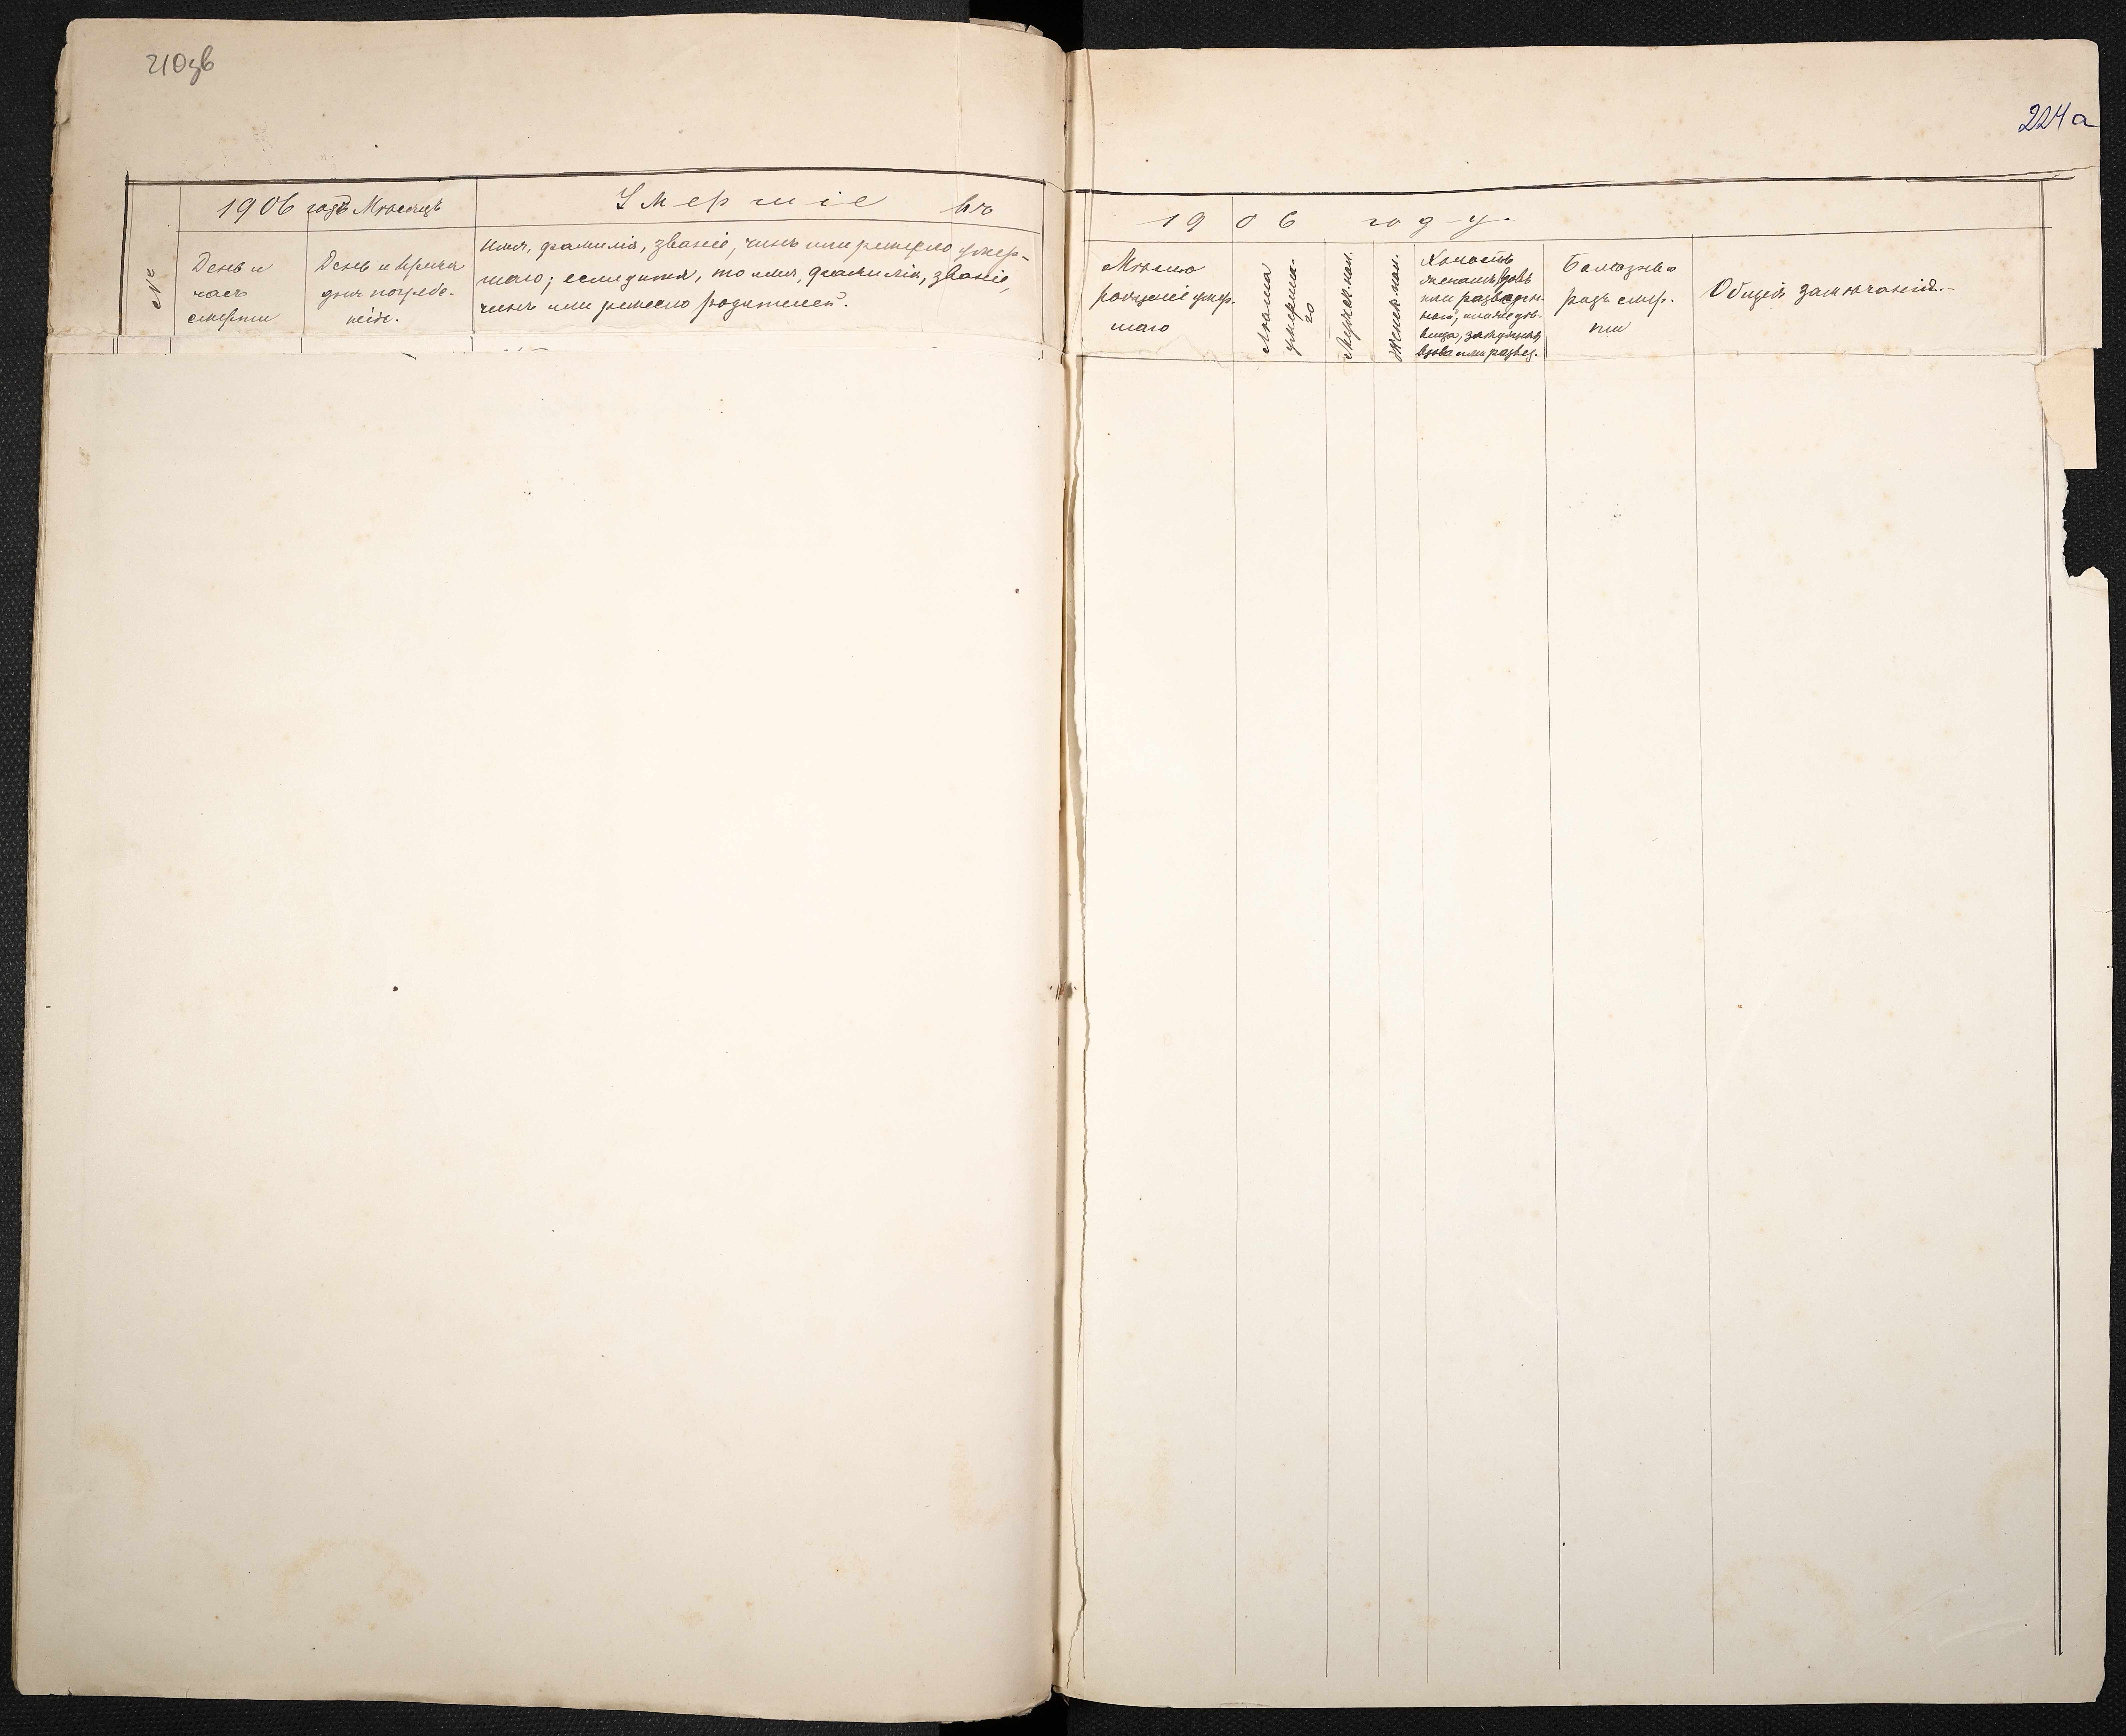 210зв
224а
1906 годъ Мѣсяцъ
Умершіе въ
1906 году.
№
День и
часъ
смерти
День и время
дня погребе-
нія.
Имя, фамилія, званіе, чинъ или ремесло умер-
шаго; если дитя, то имя, фамилія, званіе,
чинъ или ремесло родителей.
Мѣсто
рожденія умер-
шаго
Лѣта
умерша-
го
Мужеск. пол.
Женск. пол.
Холостъ
женатъ, вдовъ
или разведен-
ной,
вица, замужняя
вдова или развед.
Болѣзнь и
родъ смер-
ти
Общія замѣчанія.-